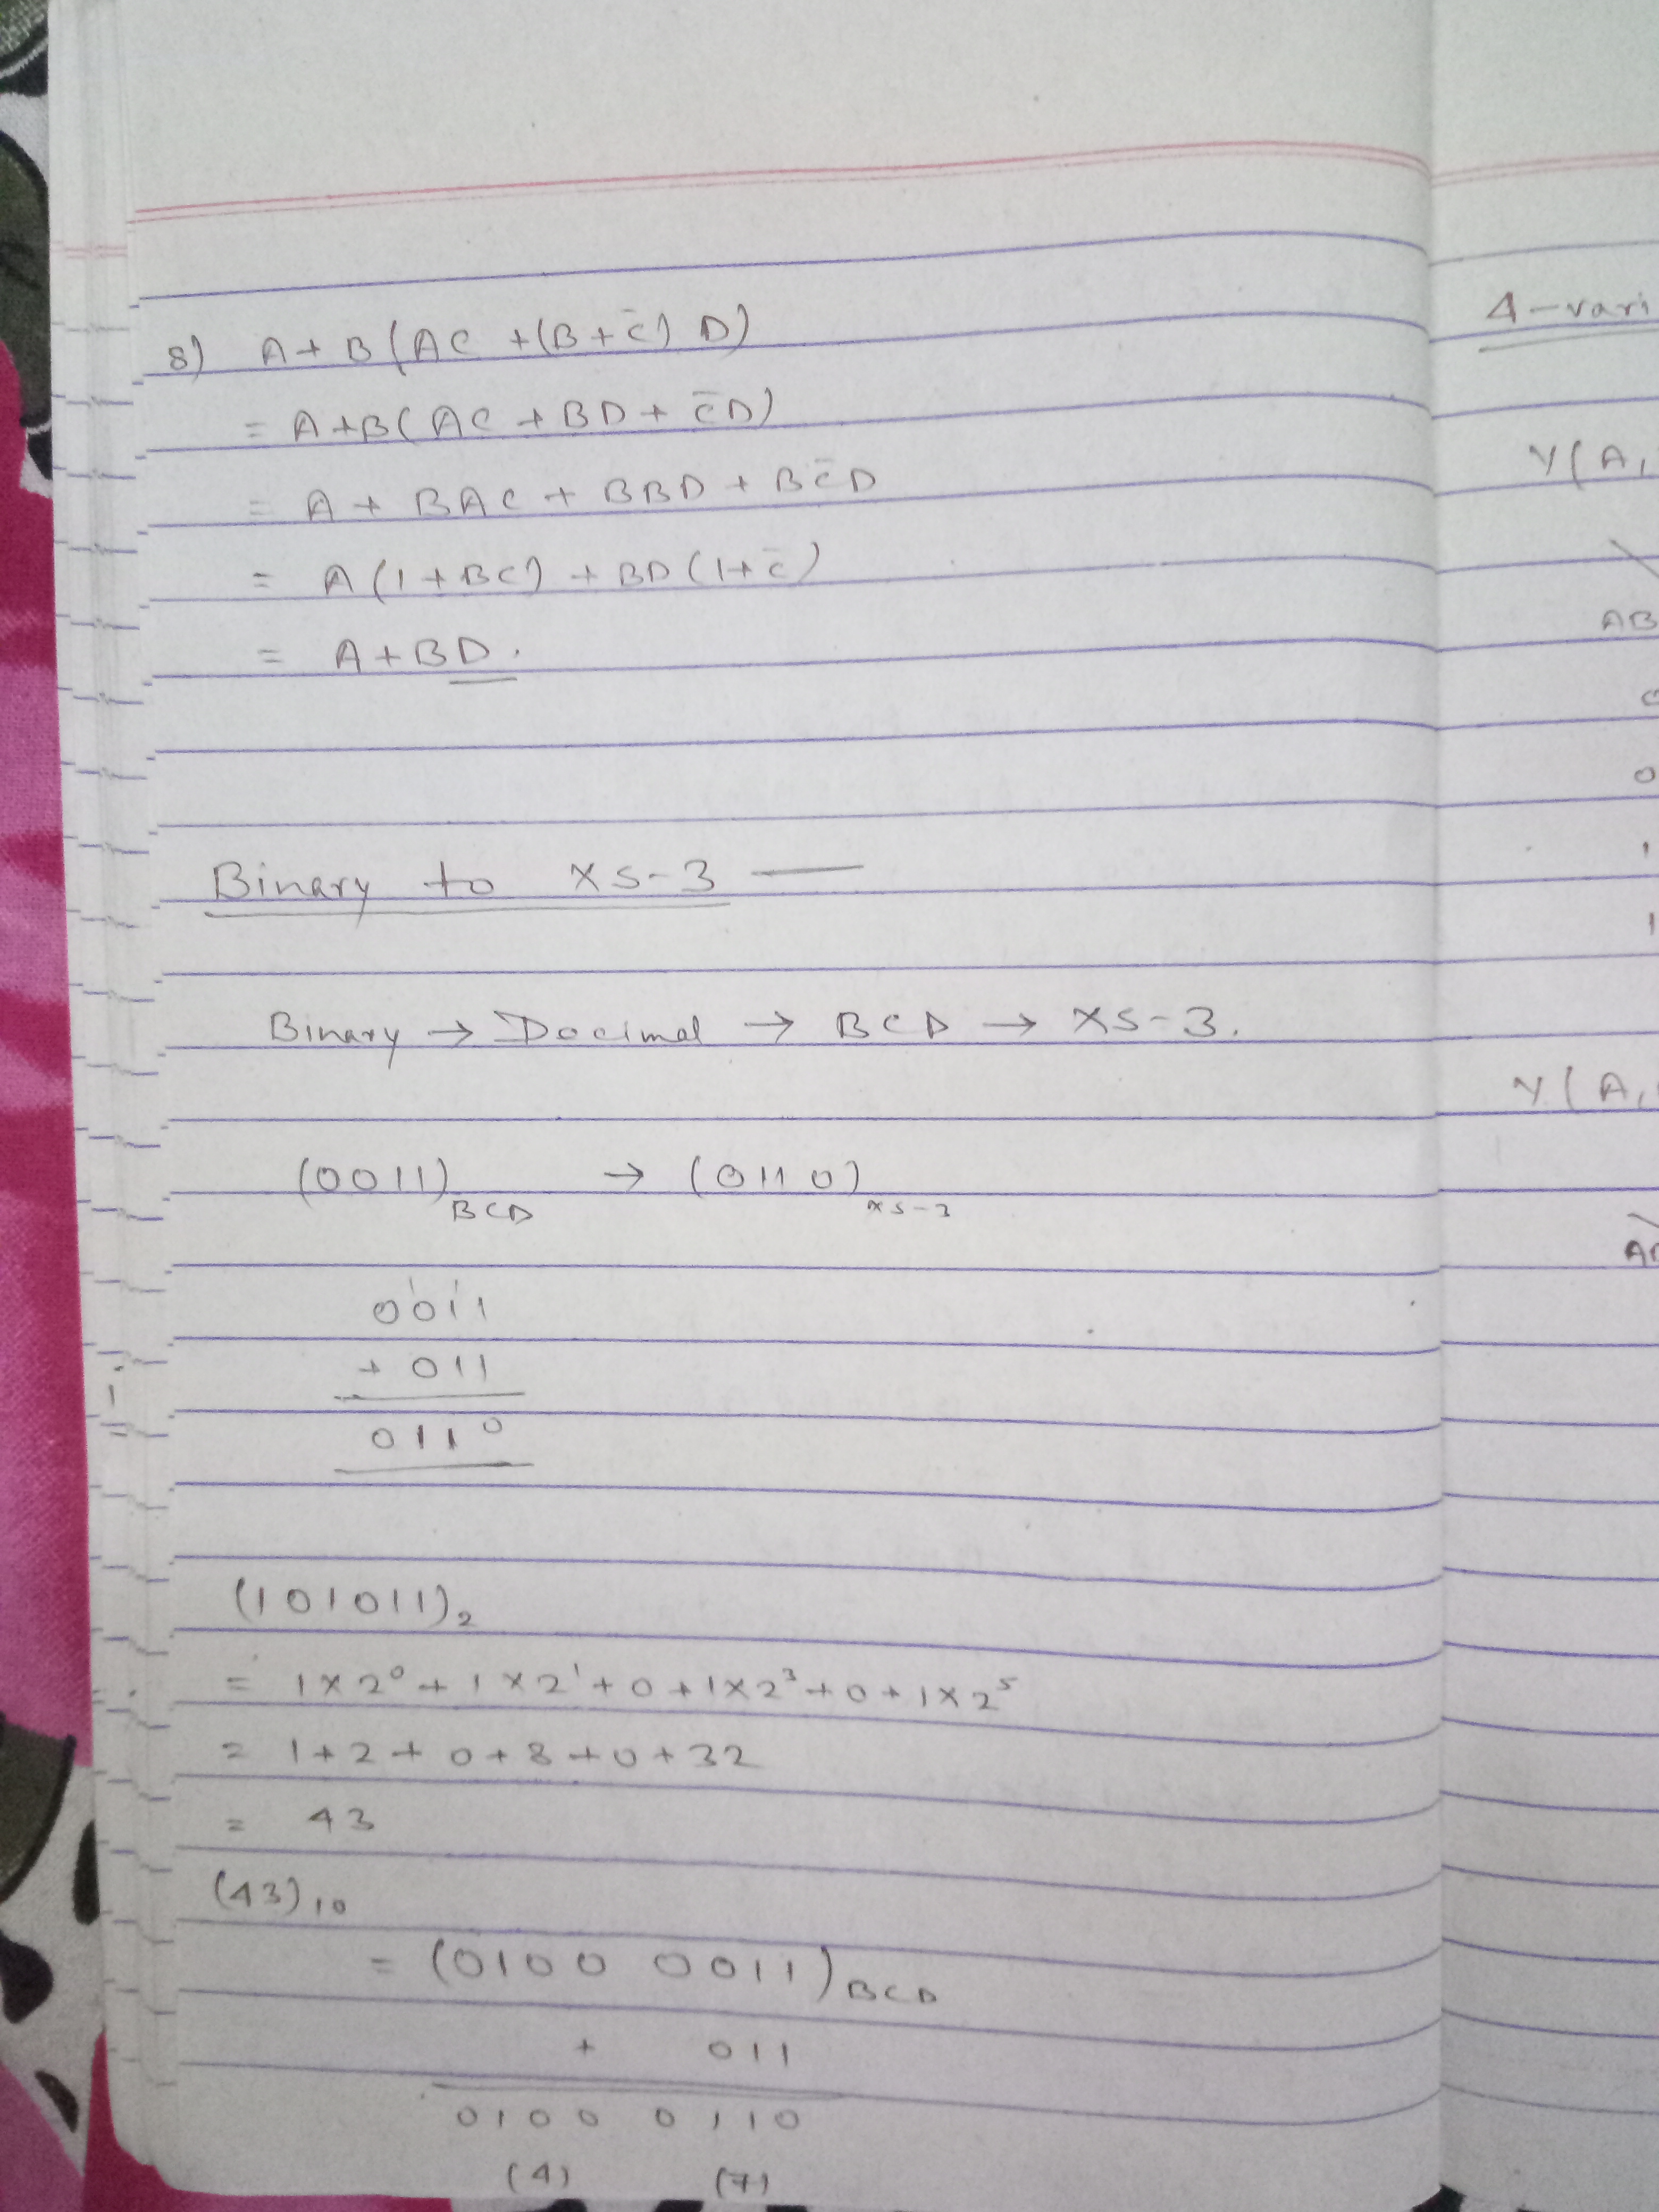 8) A + B (AC + (B + C̄) D)
= A + B (AC + BD + C̄D)
= A + BAC + BBD + BC̄D
= A (1 + BC) + BD (1 + C̄)
= A + BD.
Binary to XS-3 —
Binary → Decimal → BCD → XS-3.
(0011)BCD → (0110)XS-3
1 1
0011
+ 011
0110
(101011)₂
= 1×2⁰ + 1×2¹ + 0 + 1×2³ + 0 + 1×2⁵
= 1 + 2 + 0 + 8 + 0 + 32
= 43
(43)₁₀
= (0100 0011)BCD
+ 011
0100 0110
(4) (7)
4-vari
Y(A,
AB
0
1
1
Y(A,